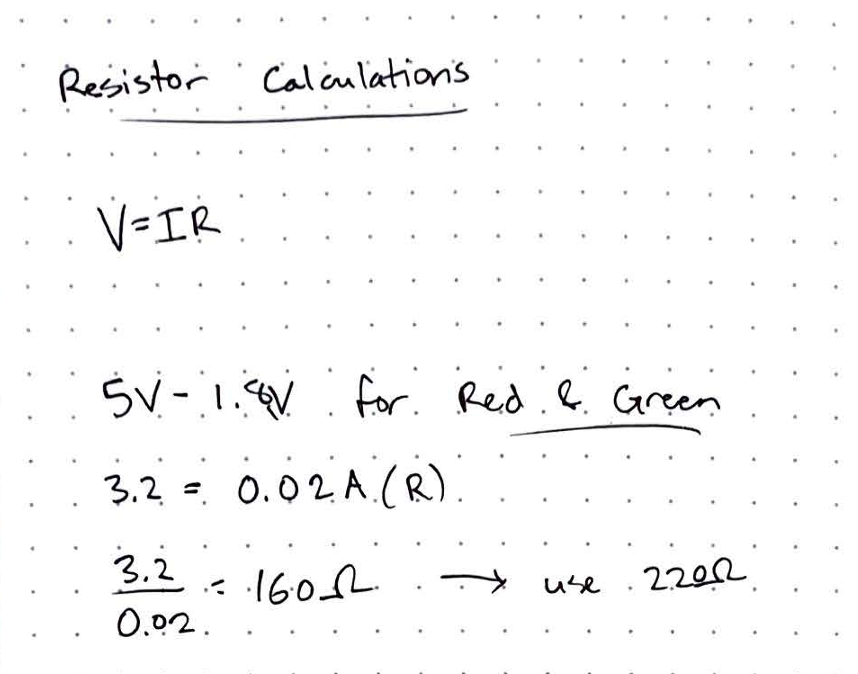 Resistor Calculations
V=IR
5V - 1.8V for Red & Green
3.2 = 0.02A (R)
3.2/0.02 = 160Ω → use 220Ω